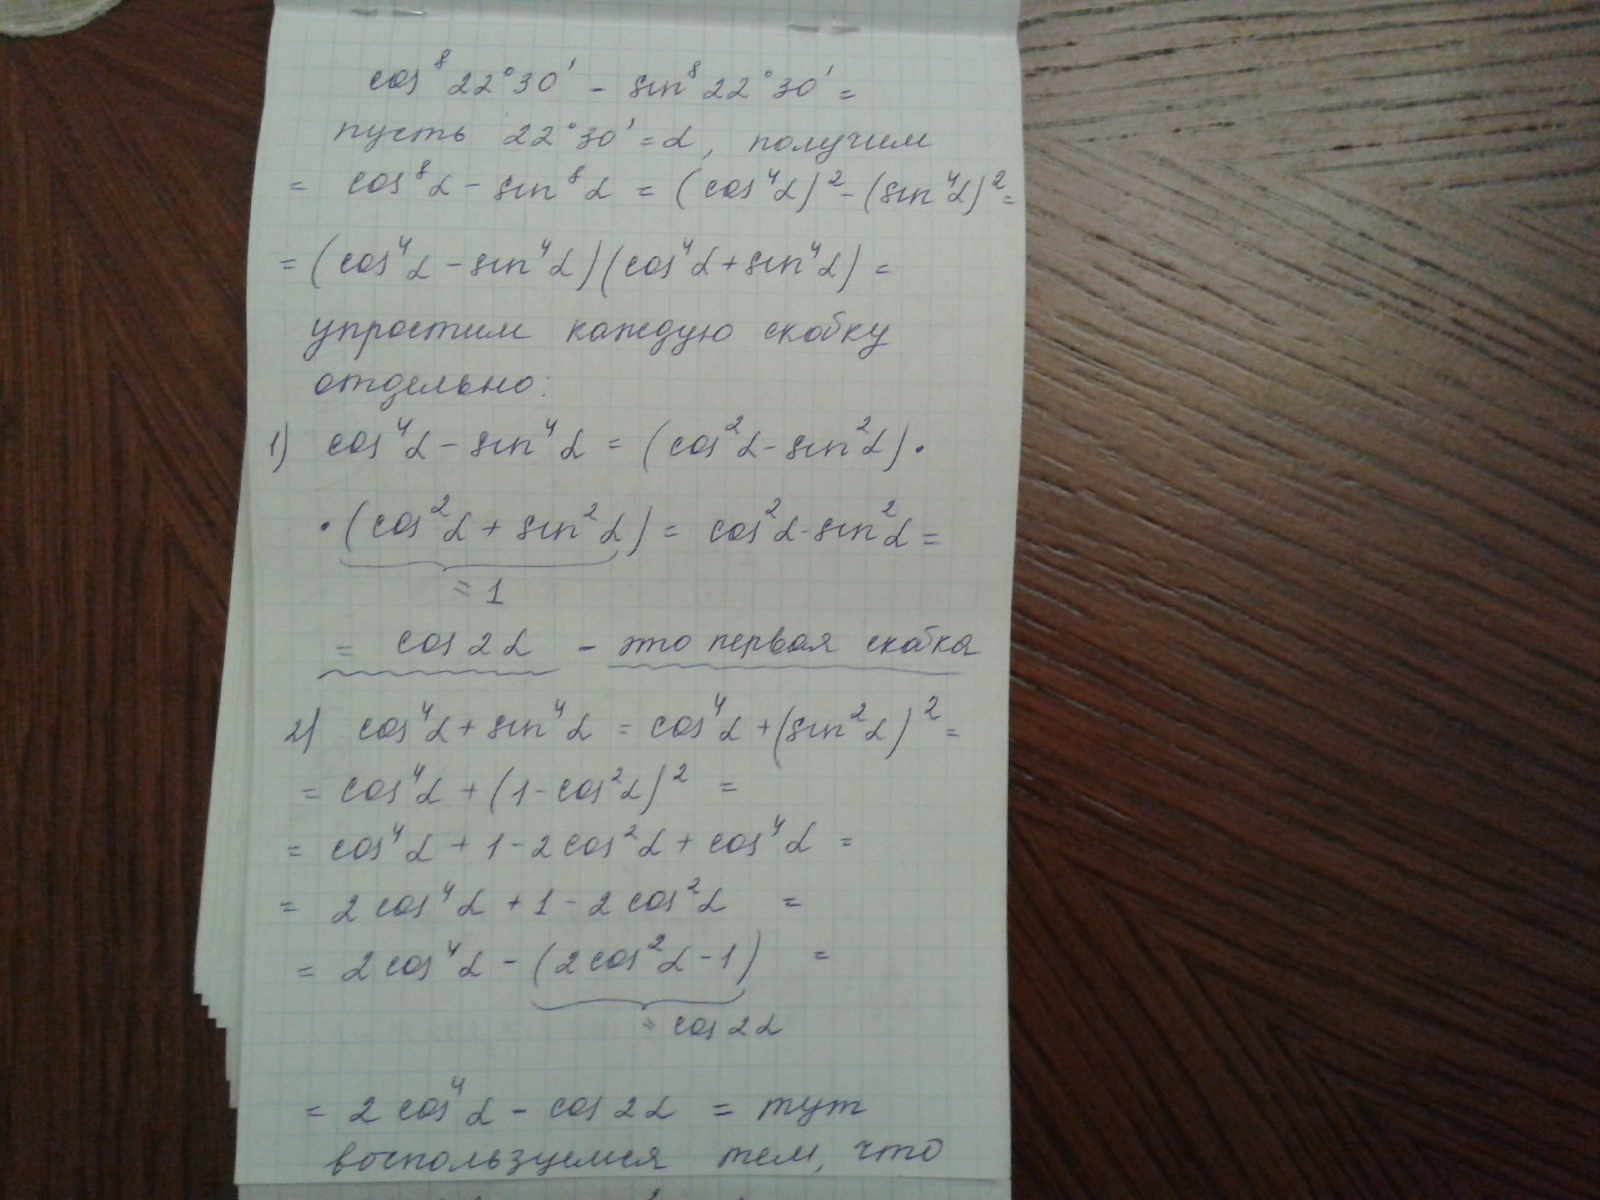 cos⁸ 22°30' - sin⁸ 22°30' =
пусть 22°30' = α, получим
= cos⁸α - sin⁸α = (cos⁴α)² - (sin⁴α)² =
= (cos⁴α - sin⁴α)(cos⁴α + sin⁴α) =
упростим каждую скобку
отдельно:
1) cos⁴α - sin⁴α = (cos²α - sin²α) ·
· (cos²α + sin²α) = cos²α - sin²α =
= 1
= cos2α - это первая скобка
2) cos⁴α + sin⁴α = cos⁴α + (sin²α)² =
= cos⁴α + (1 - cos²α)² =
= cos⁴α + 1 - 2cos²α + cos⁴α =
= 2cos⁴α + 1 - 2cos²α =
= 2cos⁴α - (2cos²α - 1) =
= cos2α
= 2cos⁴α - cos2α = тут
воспользуемся тем, что